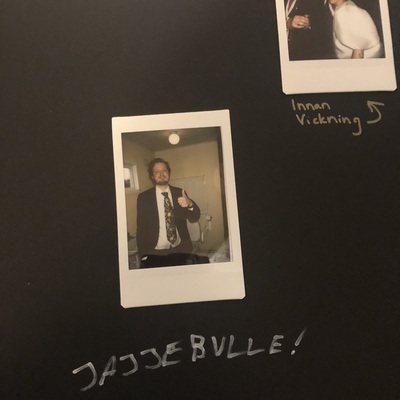 Innan
Vickning
JAJJEBULLE!